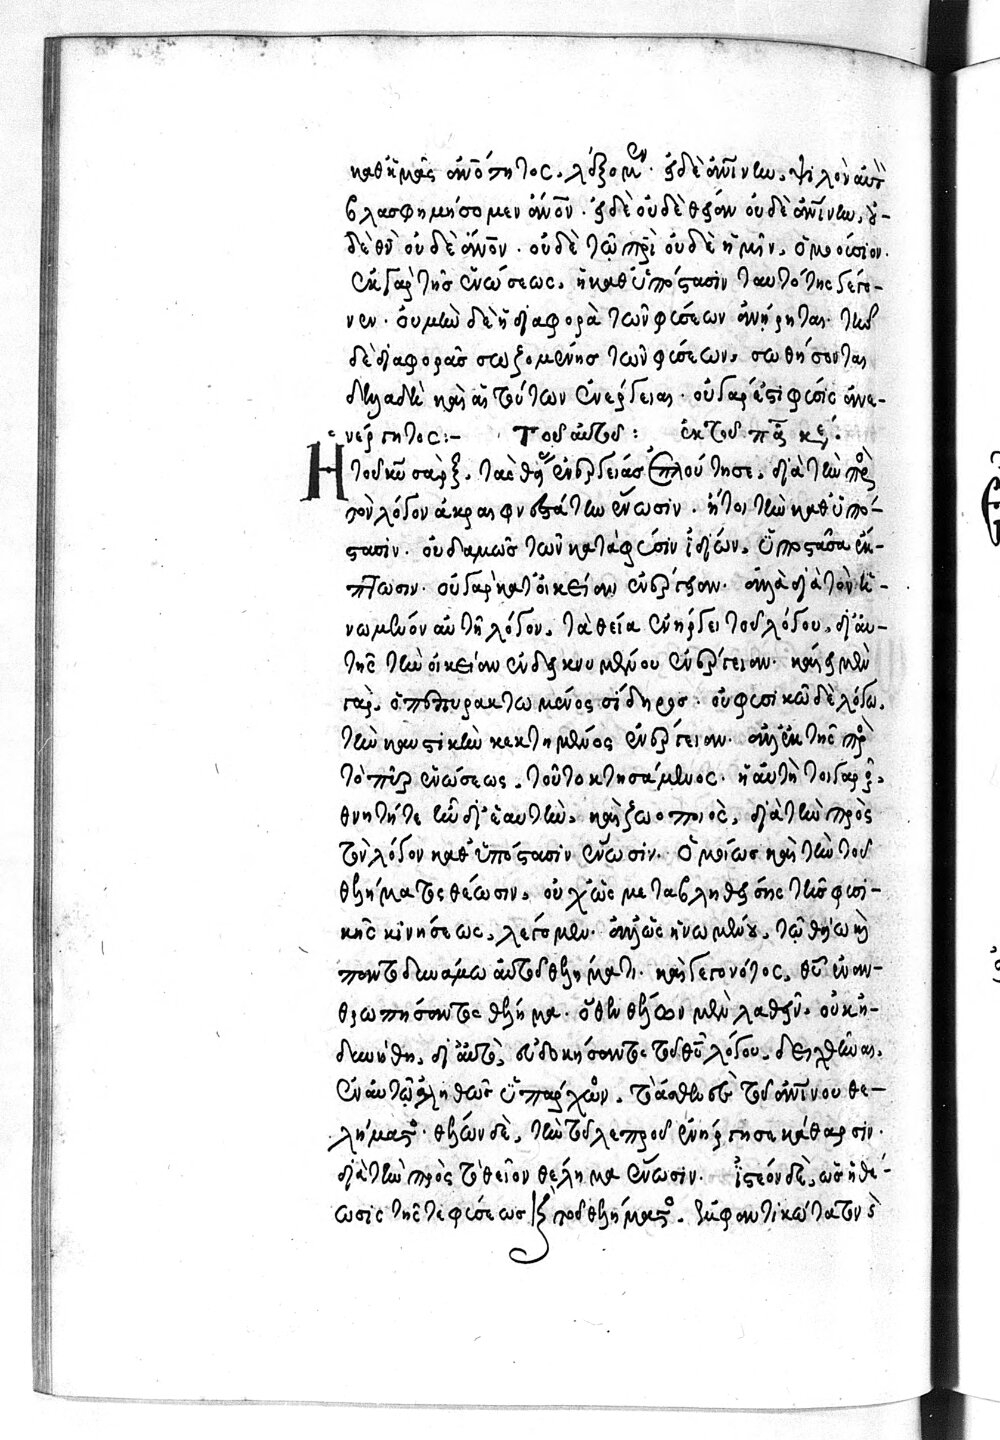 καθ' ἡμᾶς ἀνότητος, λέξομεν. εἰ δὲ ἀνίνην, ψιλὸν αὐτὸν
βλασφημήσομεν ἄνον. εἰ δὲ οὐδὲ θείαν οὐδὲ ἀνίνην, οὐ-
δὲ θν οὐδὲ ἄνον. οὐδὲ τῶ πρι οὐδὲ ἡμῖν, ὁμοούσιον.
ἐκ γὰρ τῆς ἑνώσεως, ἡ καθ' ὑπόστασιν ταυτότης γέγο-
νεν. οὐ μὴν δὲ ἡ διαφορὰ τῶν φύσεων ἀνήρηται. τῆς
δὲ διαφορᾶς σωζομένης τῶν φύσεων, σωθήσονται
δηλαδὴ καὶ αἱ τούτων ἐνέργειαι. οὐ γάρ ἐστι φύσις ἀνε-
νέργητος:- Τοῦ αὐτοῦ: ἐκ τοῦ
Ἡ τοῦ κυ σαρξ, τὰς θείας ἐνεργείας ἐπλούτησε, διὰ τὴν πρὸς
τὸν λόγον ἀκραιφνεστάτην ἕνωσιν. ἤτοι τὴν καθ' ὑπό-
στασιν. οὐδαμῶς τῶν κατὰ φύσιν ἰδίων, ὑποστᾶσα ἔκ-
πτωσιν. οὐ γὰρ κατ' οἰκείαν ἐνέργειαν. ἀλλὰ διὰ τὸν ἡ-
νωμένον αὐτῆ λόγον, τὰ θεῖα ἐνήργει τοῦ λόγου, δι' αὐ-
τῆς τὴν οἰκείαν ἐνδεικνυμένου ἐνέργειαν. καίει μὲν
γὰρ, ὁ πεπυρακτωμένος σίδηρος. οὐ φυσικῶ δὲ λόγω,
τὴν καυστικὴν κεκτημένος ἐνέργειαν. ἀλλ' ἐκ τῆς πρὸς
τὸ πῦρ ἑνώσεως, τοῦτο κτησάμενος. ἡ αὐτὴ τοιγαροῦν,
θνητή τε ἦν δι' ἑαυτὴν, καὶ ζωοποιὸς, διὰ τὴν πρὸς
τὸν λόγον καθ' ὑπόστασιν ἕνωσιν. ὁμοίως καὶ τὴν τοῦ
θελήματος θέωσιν, οὐχ ὡς μεταβληθείσης τῆς φυσι-
κῆς κινήσεως, λέγομεν. ἀλλ' ὡς ἡνωμένου, τῶ θείω καὶ
παντοδυνάμω αὐτοῦ θελήματι. καὶ γεγονότος, θυ ἐναν-
θρωπήσαντος θέλημα. ὅθεν θέλων μὲν λαθεῖν, οὐκ ἠ-
δυνήθη, δι' αὐτοῦ, εὐδοκήσαντος τοῦ θυ λόγου, δειχθῆναι,
ἐν αὐτῶ ἀληθῶς ὑπάρχον, τὸ ἀσθενὲς τοῦ ἀνίνου θε-
λήματος. θέλων δὲ, τὴν τοῦ λεπροῦ ἐνήργησε κάθαρσιν.
διὰ τὴν πρὸς τὸ θεῖον θέλημα ἕνωσιν. Ἰστέον δὲ, ὡς ἡ θέ-
ωσις τῆς τε φύσεως καὶ τοῦ θελήματος, ἐμφαντικώτατον